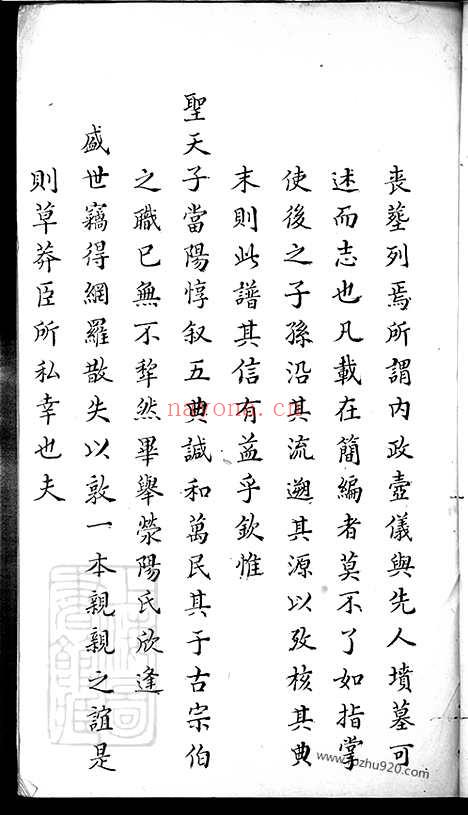 丧塟列焉所謂內政壼儀與先人墳墓可
述而志也凡載在簡編者莫不了如指掌
使後之子孫沿其流遡其源以攷核其典
末則此譜其信有益乎欽惟
聖天子當陽惇叙五典諴和萬民其于古宗伯
之職已無不犂然畢舉滎陽氏欣逢
盛世竊得網羅散失以敦一本親親之誼是
則草莽臣所私幸也夫
nayona.cn